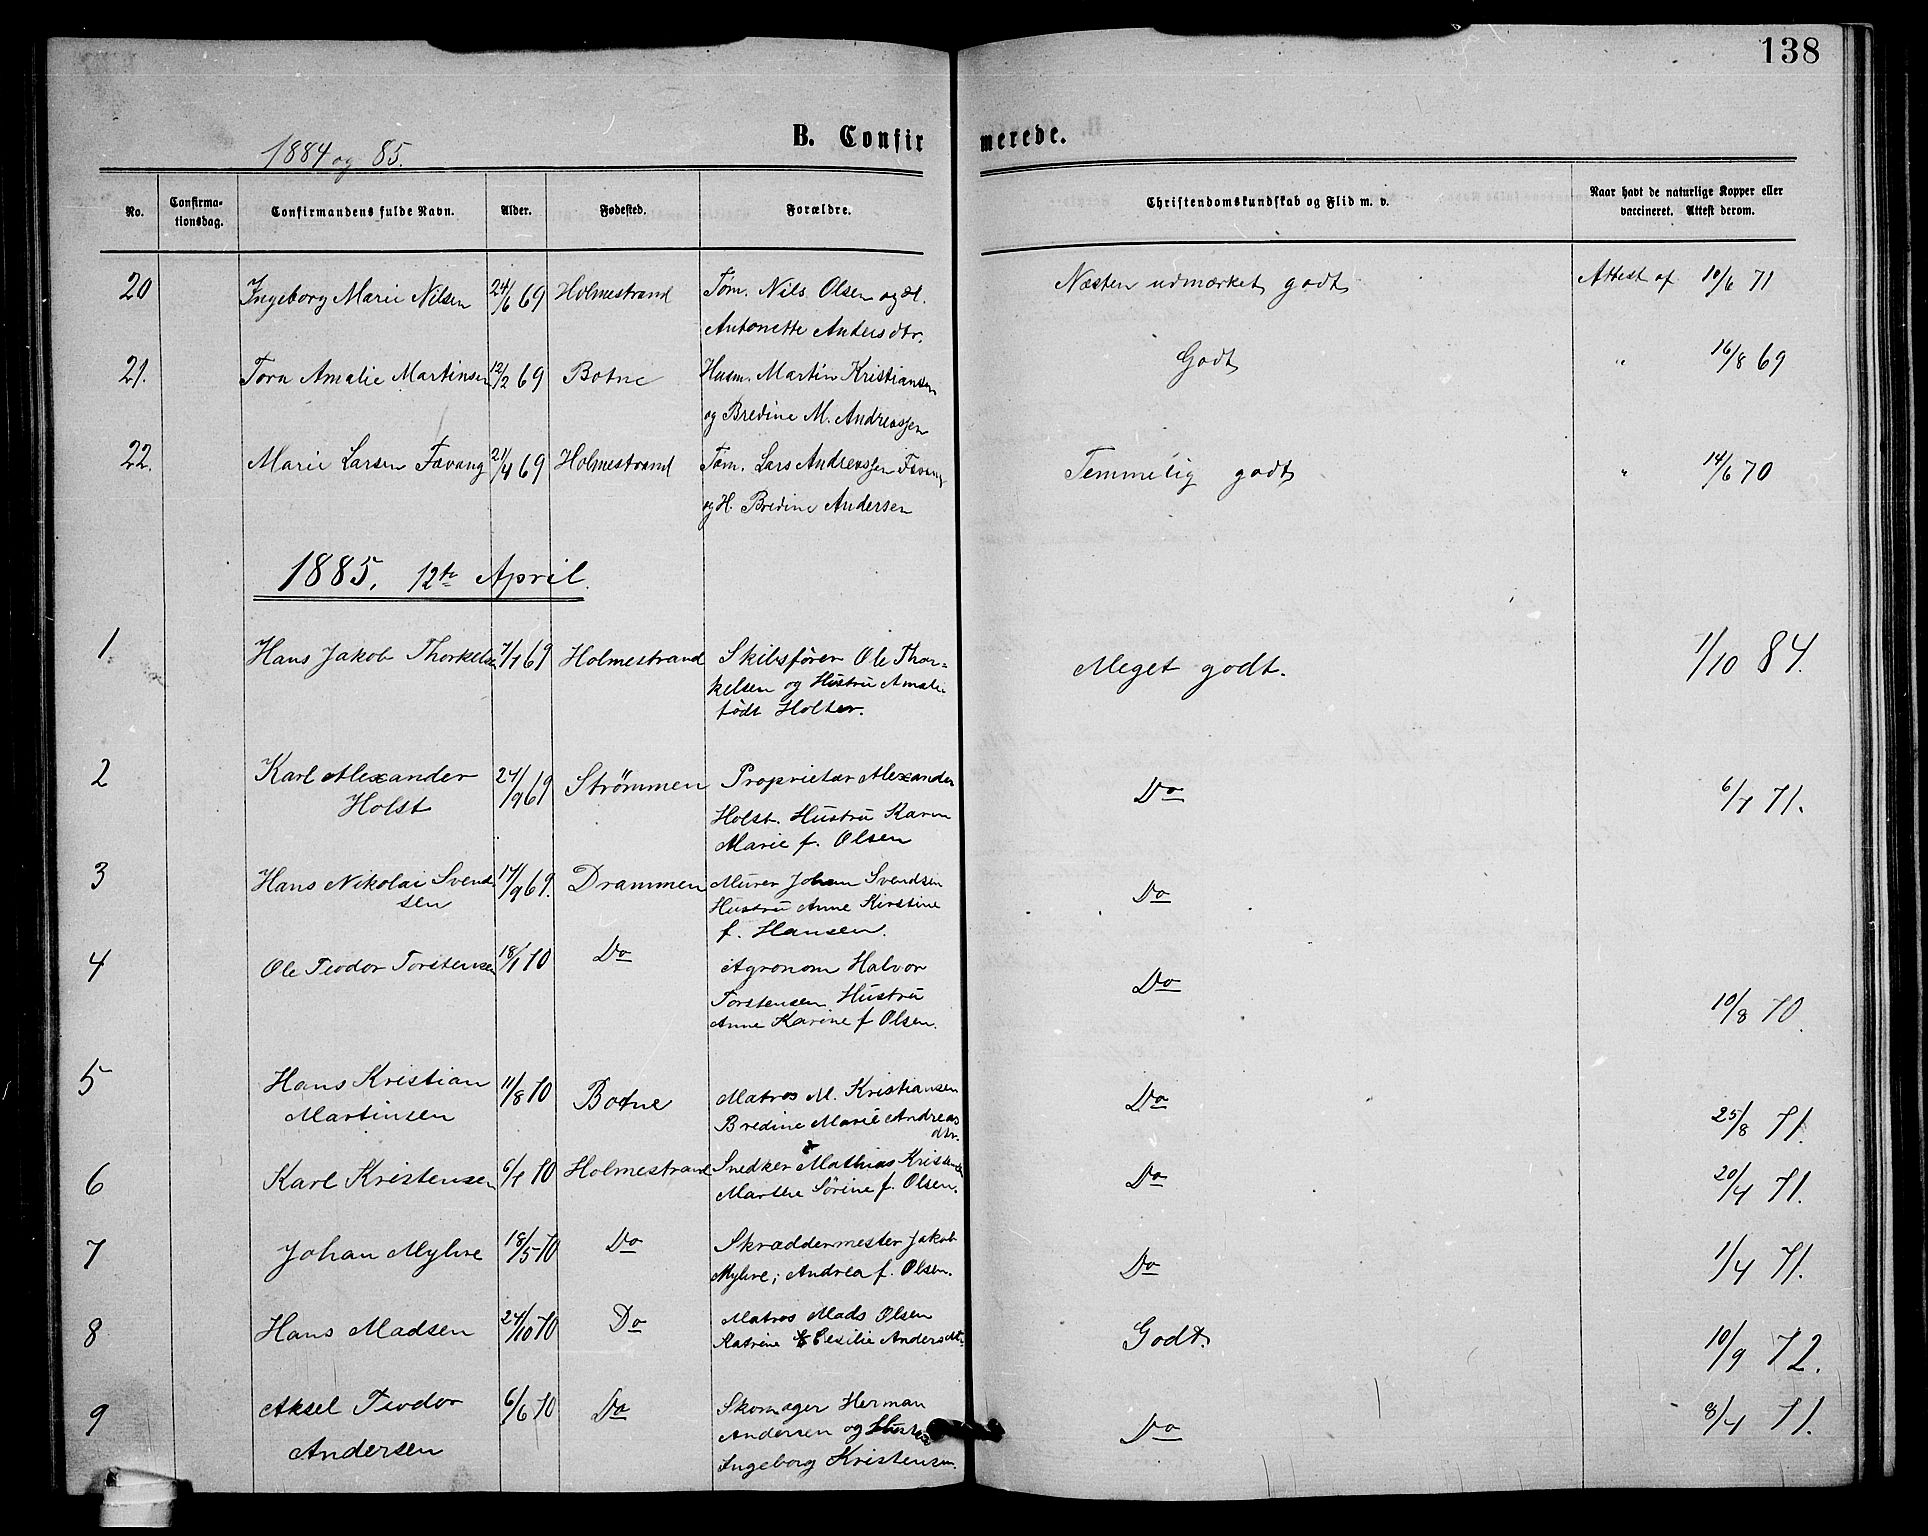 138
B. Confirmerede.
1884 og 85.
No. Confirmationsdag. Confirmandens fulde Navn. Alder. Fødested. Forældre. Christendomskundskab og Flid m. v. Naar havt de naturlige Kopper eller vaccineret. Attest derom.
20 Ingeborg Marie Nilsen 24/6 69 Holmestrand Tøm. Nils Olsen og H. Næsten udmærket godt Attest af 10/6 71
Antonette Andersdtr.
21. Tora Amalie Martinsen 12/2 69 Botne Husm. Martin Kristiansen Godt " 16/8 69
og Bredine M. Andreassen
22. Marie Larsen Favang 21/4 69 Holmestrand Tøm. Lars Andreassen Favang Temmelig godt " 14/6 70
og H. Bredine Andersen
1885. 12te April.
1 Hans Jakob Thorkelsen 7/7 69 Holmestrand Skibsfører Ole Thor- Meget godt. 1/10 84.
kelsen og Hustru Amalie
født Holter.
2 Karl Alexander 27/9 69 Strømmen Proprietær Alexander Do 6/7 71.
Holst Holst. Hustru Karen
Marie f. Olsen
3 Hans Nikolai Svend- 17/9 69. Drammen Murer Johan Svendsen Do
sen Hustru Anne Kirstine
f. Hansen.
4 Ole Teodor Torstensen 18/1 70 Do Agronom Halvor Do 10/8 70.
Torstensen Hustru
Anne Karine f Olsen.
5 Hans Kristian 11/8 70 Botne Matros M. Kristiansen Do 25/8 71.
Martinsen Bredine Marie Andreas
dtr.
6 Karl Kristensen 6/7 70 Holmestrand Snedker Mathias Kristensen Do 20/4 71.
Marthe Sørine f. Olsen.
7 Johan Myhre 18/5 70 Do Skræddermester Jakob Do 1/4 71.
Myhre; Andrea f. Olsen.
8 Hans Madsen 24/10 70 Do Matros Mads Olsen Godt. 10/9 72.
Katrine Cesilie Andersdtr.
9 Aksel Teodor 6/6 70 Do Skomager Herman Do 8/4 71.
Andersen Andersen og Hustru
Ingeborg Kristensen.